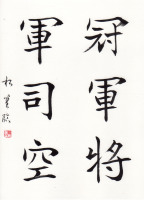 冠軍將
軍司空